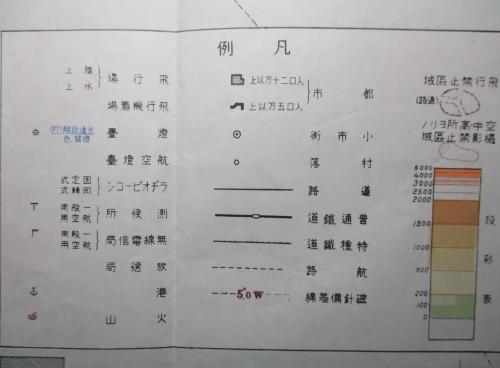 凡例
飛行禁止區域
(通路)
空中高所ヨリノ
撮影禁止區域
6000
4000
3000
2500
2000
1000
500
200
100
0
段彩表
都市
人口二十万以上
人口五万以上
小市街
村落
道路
普通鐵道
特種鐵道
航路
磁針偏差線
5°.0 W
飛行場
陸上
水上
飛行機着場
燈臺
航空燈臺
ラヂオビーコン
固定式
回轉式
測候所
一般用
航空用
無線電信局
一般用
航空用
放送局
港
火山